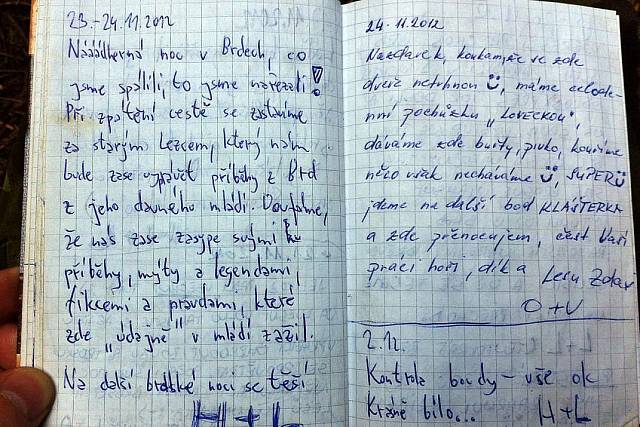 23.-24.11.2012
Nááádherná noc v Brdech, co
jsme spálili, to jsme nařezali!
Při zpáteční cestě se zastavíme
za starým Lezcem, který nám
bude zase vyprávět příběhy z Brd
z jeho dávného mládí. Doufáme,
že nás zase zasype svými
příběhy, mýty a legendami,
fikcemi a pravdami, které
zde "údajně" v mládí zažil.
Na další brdské noci se těší
H+L
24.11.2012
Nazdárek, koukám, že se zde
dveře netrhnou, máme celode-
nní pochůzku "LOVECKOU",
dáváme zde buřty, pivko, kouříme
něco však necháváme, SUPER
jdeme na další bod KLÁŠTERKA
a zde přenocujem, čest Vaší
práci hoši, dík a Lesu Zdar
O+V
2.12.
Kontrola boudy - vše ok
Krásně bílo... H+L